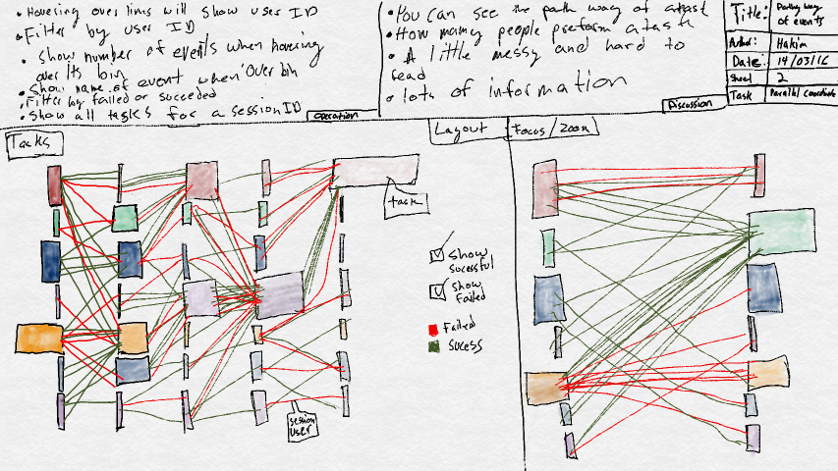 • Hovering over lines will show user ID
• Filter by user ID
• Show number of events when hovering
over its bin
• Show name of event when over bin
• Filter by failed or succeeded
• Show all tasks for a session ID
operation
• You can see the path way of a task
• How many people preform a task
• A little messy and hard to
read
• lots of information
Discussion
Title: Pathway
of events
Author: Hakim
Date: 14/03/16
Sheet 2
Task Parallel Coordinates
Layout
Focus/Zoom
Tasks
task
Show
sucessful
Show
failed
Failed
Sucess
session
user